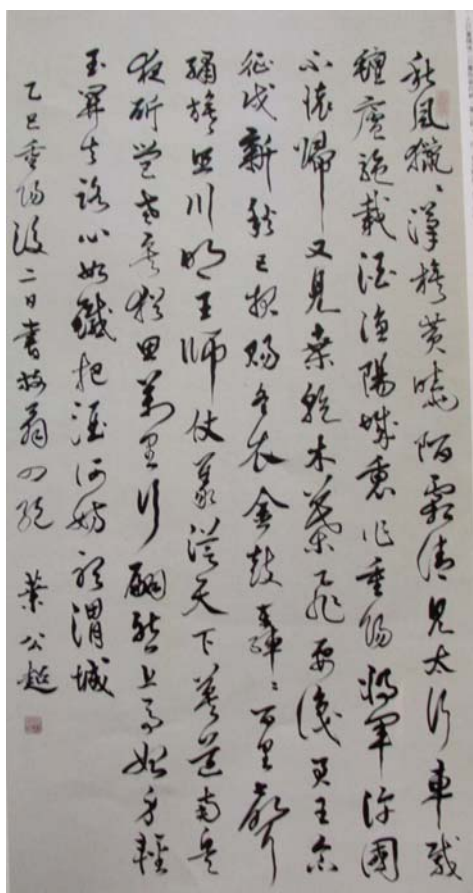 秋風獵〻漢旗黃曉陌霜清見太行車載
氈廬駝載酒漁陽城裏作重陽將軍許國
不懷歸又見桑乾木葉飛要識君王念
征戍新秋已報賜冬衣金鼓轟〻百里聲
繡旗照川明王師仗義從天下莫道南兵
夜斫營老矣猶思萬里行翩然上馬始身輕
玉關去路心如鐵把酒何妨聽渭城
乙巳重陽後二日書放翁四絕 葉公超